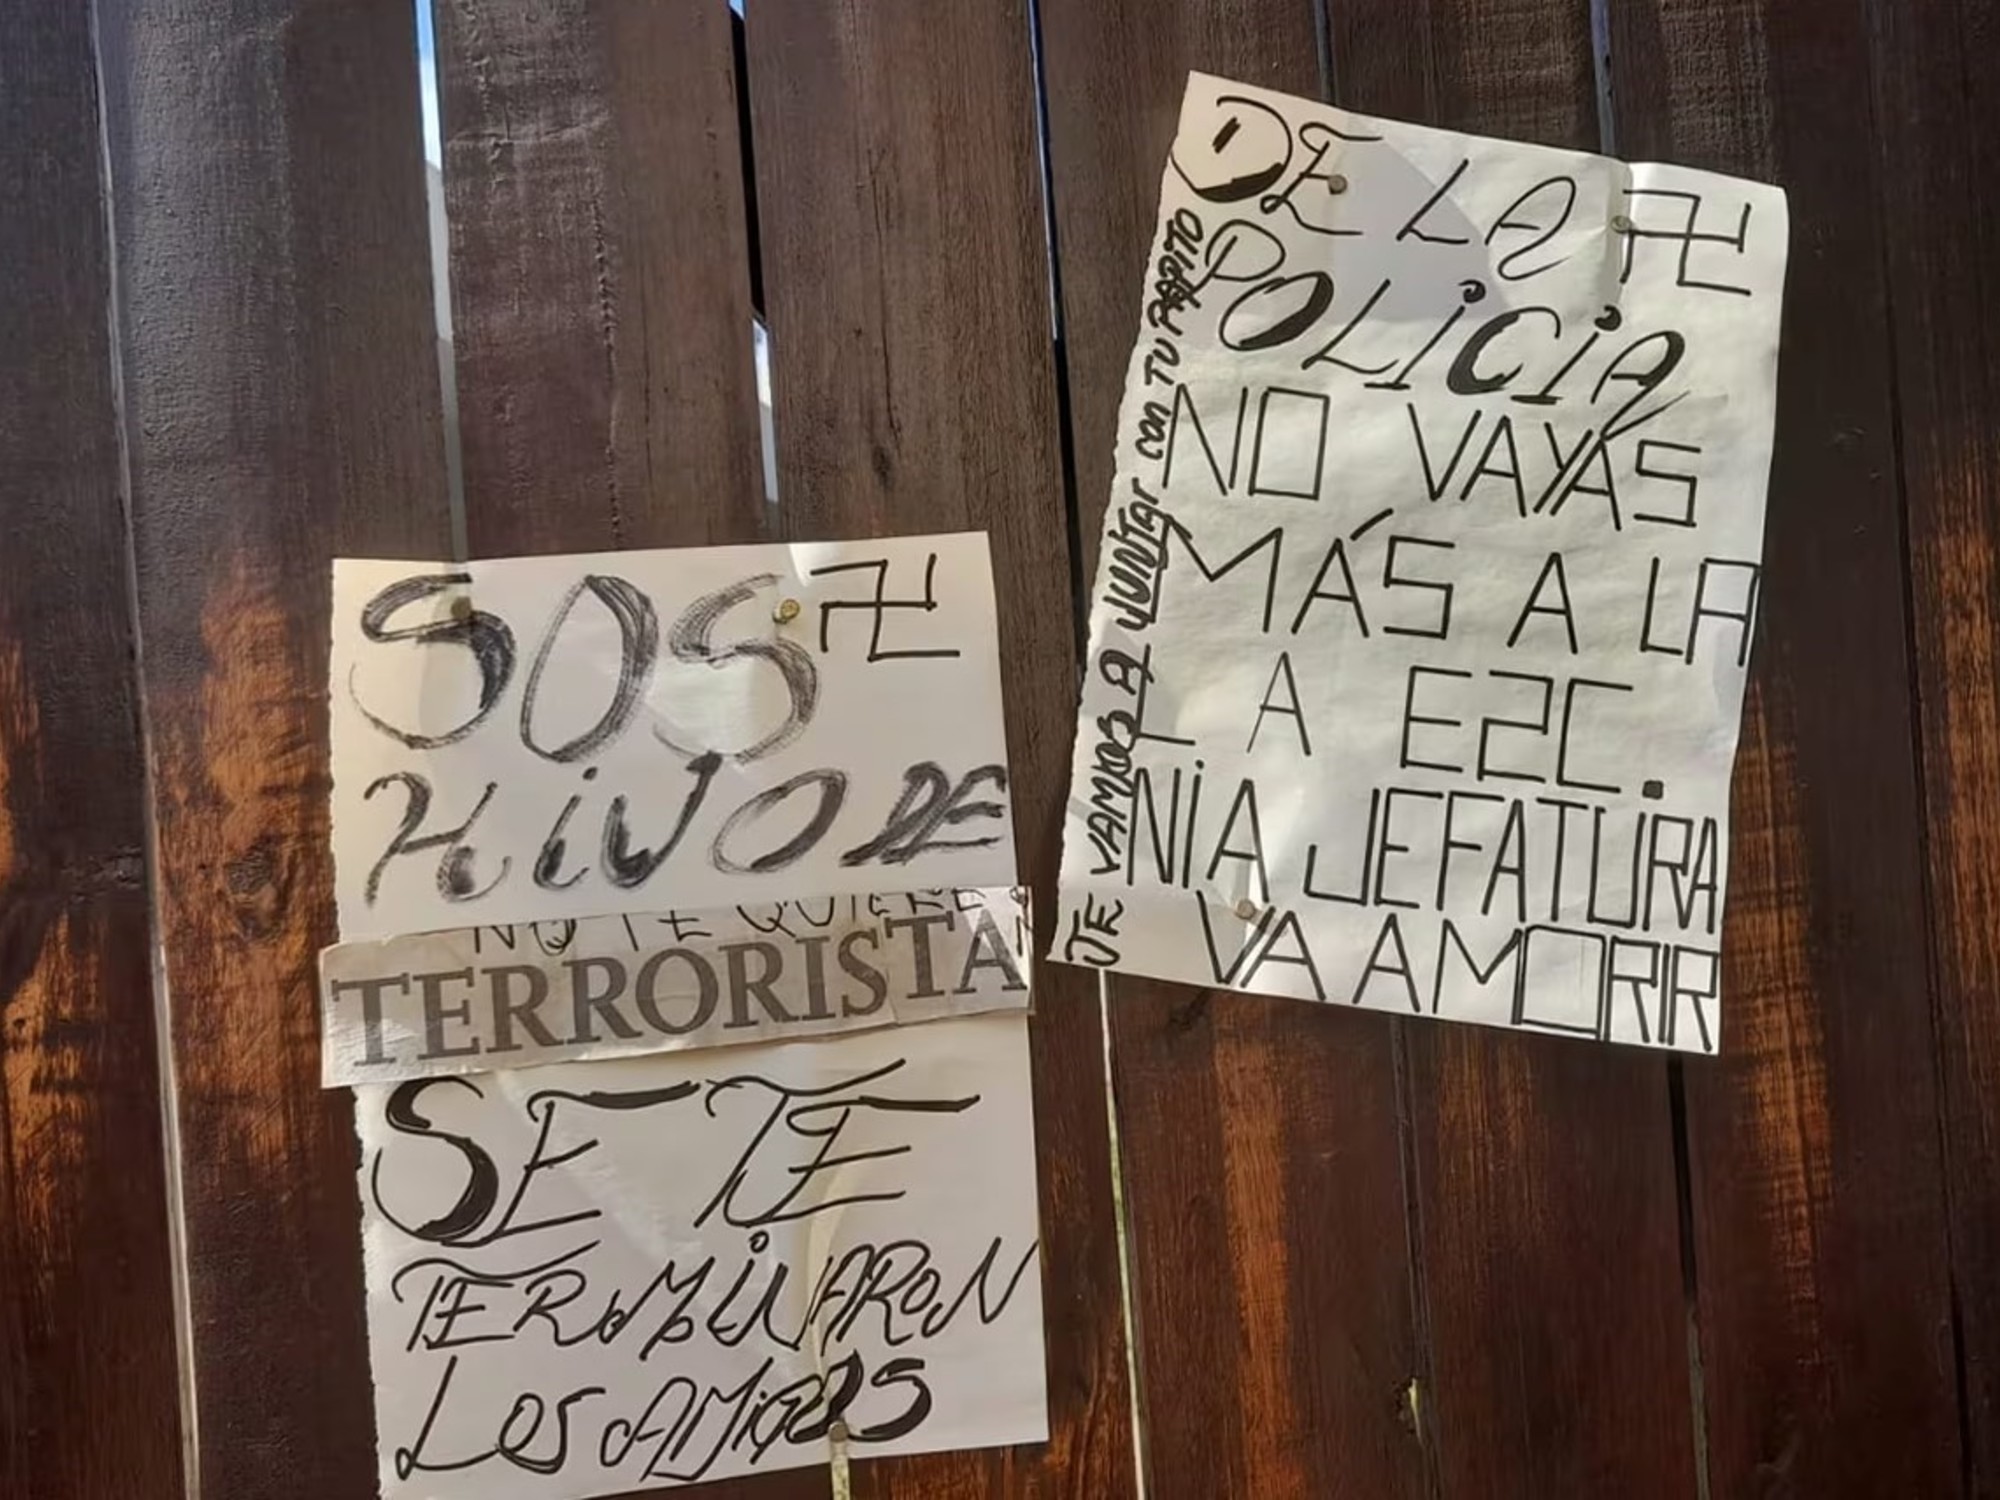 SOS
HiJO DE
NO TE QUIERE
TERRORISTA
SE TE
TERMiNARON
LOS AMiGOS
DE LA
POLiCiA
NO VAYAS
MÁS A LA
A EZC.
Ni A JEFATURA
VA A MORIR
TE VAMOS A JUNTAR con TU PAPITO